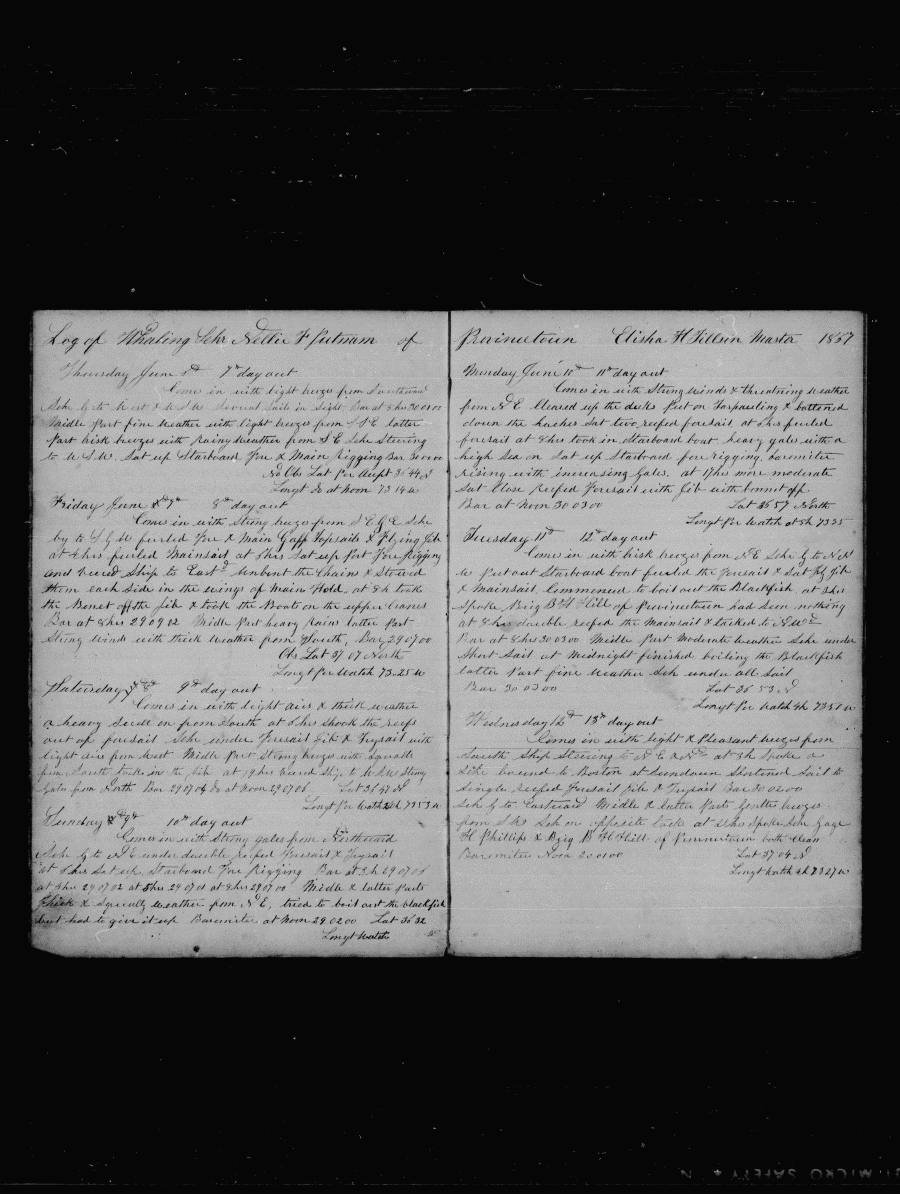 Log of Whaling Schr Nettie F Putnam of
Thursday June 7th day out
Comes in with light breeze from Southward
Schr to West & W S W Several Sails in Sight Bar at 8 hrs 30 01 00
Middle Part fine weather with light breezes from S E latter
Part brisk breezes with rainy weather from S E Schr Steering
to W S W. Sat up Starboard Fore & Main Rigging Bar 30 00 00
No Obs Lat Per Acupt 36 44 N
Longt do at Noon 73 14 W
Friday June 7th 8th day out
Comes in with Strong breeze from S E Schr
by to S & W furled Fore & Main Gaff Topsails & Flying Jib
at 4 hrs furled Mainsail at 5 hrs Sat up Port Fore Rigging
and veered Ship to Eastd Unbent the Chains & Stowed
them each side in the wings of main Hold. at 8 h took
the Bonet off the Jib & took the Boats on the upper Cranes
Bar at 8 hrs 29 09 02 Midle Part heavy rains latter Part
Strong winds with thick weather from South, Bar 29 07 00
Obs Lat 37 07 North
Longt Per Watch 73-25 W
Saturday 8th 9th day out
Comes in with light airs & thick weather
a heavy swell on from South at 5 hrs shook the reefs
out of foresail Schr under Foresail Jib & Trysail with
light airs from West Midle Part Strong breezes with Squalls
from South took in the Jib at 19 hrs veered Ship to W S W Strong
Gales from North Bar 29 07 04 do at Noon 29 07 06 Lat 36 47 N
Longt Per Watch 4h 73 53 W
Sunday 9th 10th day out
Comes in with Strong gales from Northward
Schr to N E under double reefed Foresail & Trysail
at 5 hrs Sat up Starboard Fore Rigging Bar at 3 h 29 07 06
at 4 hrs 29 07 02 at 5 hrs 29 07 01 at 8 hrs 29 07 00 Midle & latter Parts
thick & Squally weather from N E, tried to boil out the blackfish
but had to give it up Barometer at Noon 29 02 00 Lat 36 32
Longt Watch
Provincetown Elisha H Tillson Master 1867
Monday June 10th 11th day out
Comes in with Strong winds & threatning weather
from N E Cleared up the decks Put on Tarpauling & battened
down the hatches Sat two reefed foresail at 6 hrs furled
foresail at 8 hrs took in Starboard boat heavy gales with a
high sea on Sat up Starboard fore rigging. barometer
rising with increasing gales. at 17 hrs more moderate
Sat Close reefed Foresail with Jib with bonnet off
Bar at Noon 30 03 00 Lat 36 57 North
Longt Per Watch at 5h 73 35
Tuesday 11th 12th day out
Comes in with brisk breezes from N E Schr to N N
W Put out Starboard boat furled the Foresail & Sat Flg Jib
& Mainsail. Commenced to boil out the Blackfish at 3 hrs
Spoke Brig B F Hill of Provincetown had seen nothing
at 8 hrs double reefed the Mainsail & tacked to N Wd
Bar at 8 hrs 30 03 00 Midle Part Moderate weather Schr under
Short Sail at Midnight finished boiling the Blackfish
latter Part fine weather Sch under all Sail
Bar 30 03 00 Lat 36 53 N
Longt Per Watch 4h 73 50 W
Wednesday 12th 13th day out
Comes in with light & Pleasant breezes from
South Ship Steering to N E & Nd at 5h Spoke a
bound to Boston at Sundown Shortened Sail to
Single reefed Foresail Jib & Trysail Bar 30 02 00
Sch to Eastward Midle & latter Parts Gentle breezes
from Schr on opposite tack at 11 hrs Spoke Schr Gage
H Phillips & Brig B F Hill of Provincetown both Clean
Barometer Noon 30 01 00 Lat 37 04 N
Longt Watch 4h 73 27 W